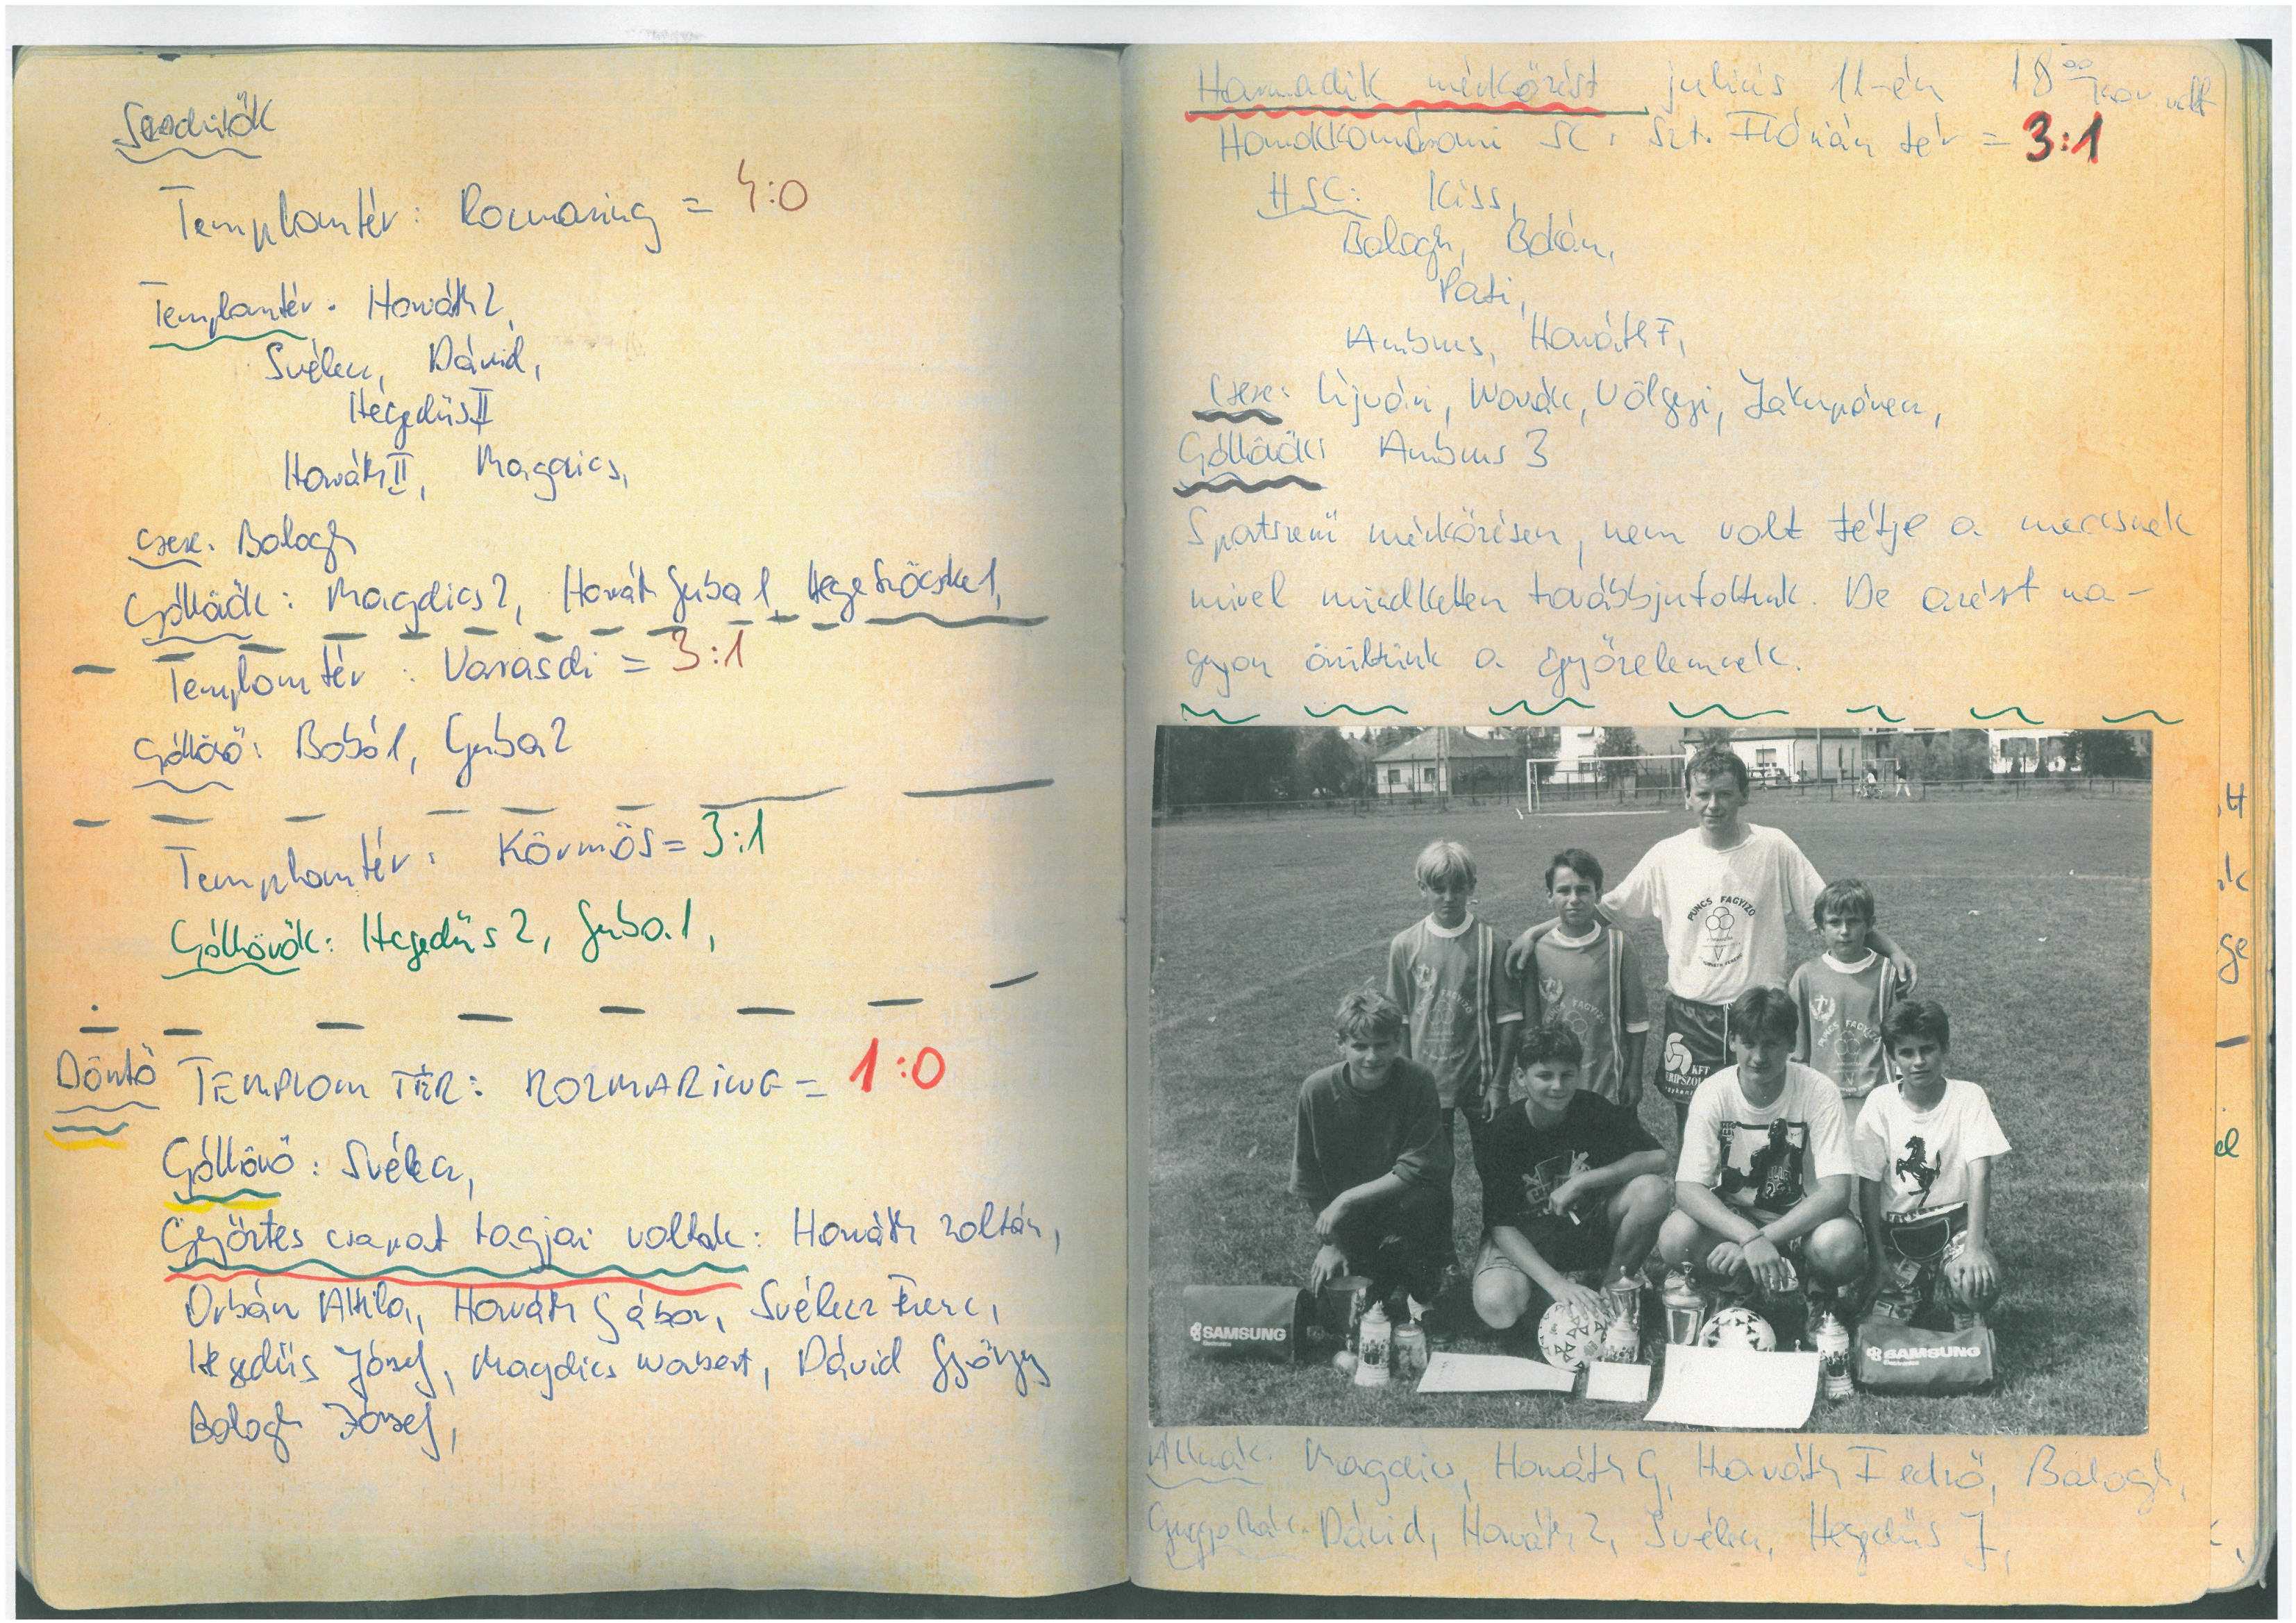 Templomtér: Rozmaring = 4:0
Templomtér: Horváth Z,
Svélecz, Dávid,
Hegedüs II
Horváth II, Magdics,
Csere: Balogh
Góllövők: Magdics 2, Horváth Guba 1,
Templomtér: Varasdi = 3:1
Góllövő: Bobó 1, Guba 2
Templomtér: Körmös = 3:1
Góllövők: Hegedűs 2, Guba 1,
Döntő TEMPLOM TÉR: ROZMARING = 1:0
Góllövő: Svélecz,
Győztes csapat tagjai voltak: Horváth Zoltán,
Orbán Attila, Horváth Gábor, Svélecz Ferenc,
Hegedüs József, Magdics Norbert, Dávid György
Balogh József,
Harmadik mérkőzést július 11-én 18 00 kor volt
Homokkomáromi SC: Szt. Flórián tér = 3:1
HSC: Kiss,
Balogh, Bokán,
Pati,
Ambrus, Horváth F,
Csere: Újvári, Novák, Völgyi,
Góllövők: Ambrus 3
Sportszerű mérkőzésen, nem volt tétje a meccsnek
mivel mindketten továbbjutottunk. De azért na-
gyon örültünk a győzelemnek.
PUNCS FAGYIZO
PUNCS FAGYIZO
KFT
SAMSUNG
Electronics
SAMSUNG
Electronics
Állnak: Magdics, Horváth G, Horváth F edző, Balogh,
Guggolnak: Dávid, Horváth Z, Svélecz, Hegedűs J,